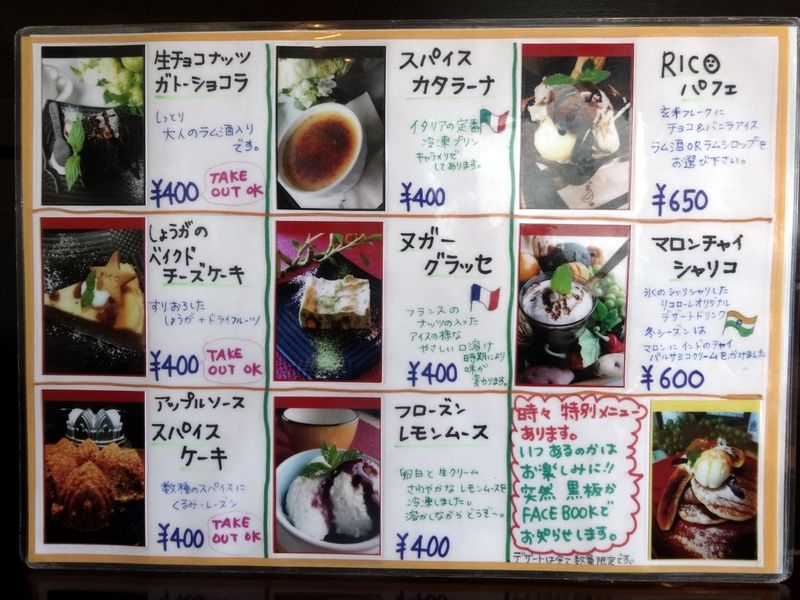 生チョコナッツ
ガトーショコラ
しっとり
大人のラム酒入り
です。
¥400
TAKE
OUT OK
スパイス
カタラーナ
イタリアの定番
冷凍プリン
キャラメリゼ
してあります。
¥400
RICO
パフェ
玄米フレークに
チョコ&バニラアイス
ラム酒ORラムシロップを
お選び下さい。
¥650
しょうがの
ベイクド
チーズケーキ
すりおろした
しょうが+ドライフルーツ
¥400
TAKE
OUT OK
ヌガー
グラッセ
フランスの
ナッツの入った
アイスの様な
やさしい口溶け
時期により
味が
変わります。
¥400
マロンチャイ
シャリコ
氷のシャリシャリした
リコローレオリジナル
デザートドリンク
冬シーズンは
マロンにインドのチャイ
バルサミコクリームをかけました
¥600
アップルソース
スパイス
ケーキ
数種のスパイスに
くるみ・レーズン
¥400
TAKE
OUT OK
フローズン
レモンムース
卵白と生クリーム
さわやかなレモンムースを
冷凍しました。
溶かしながらどうぞ〜。
¥400
時々特別メニュー
あります。
いつあるのかは
お楽しみに!!
突然黒板か
FACE BOOKで
お知らせします。
デザートは全て数量限定です。